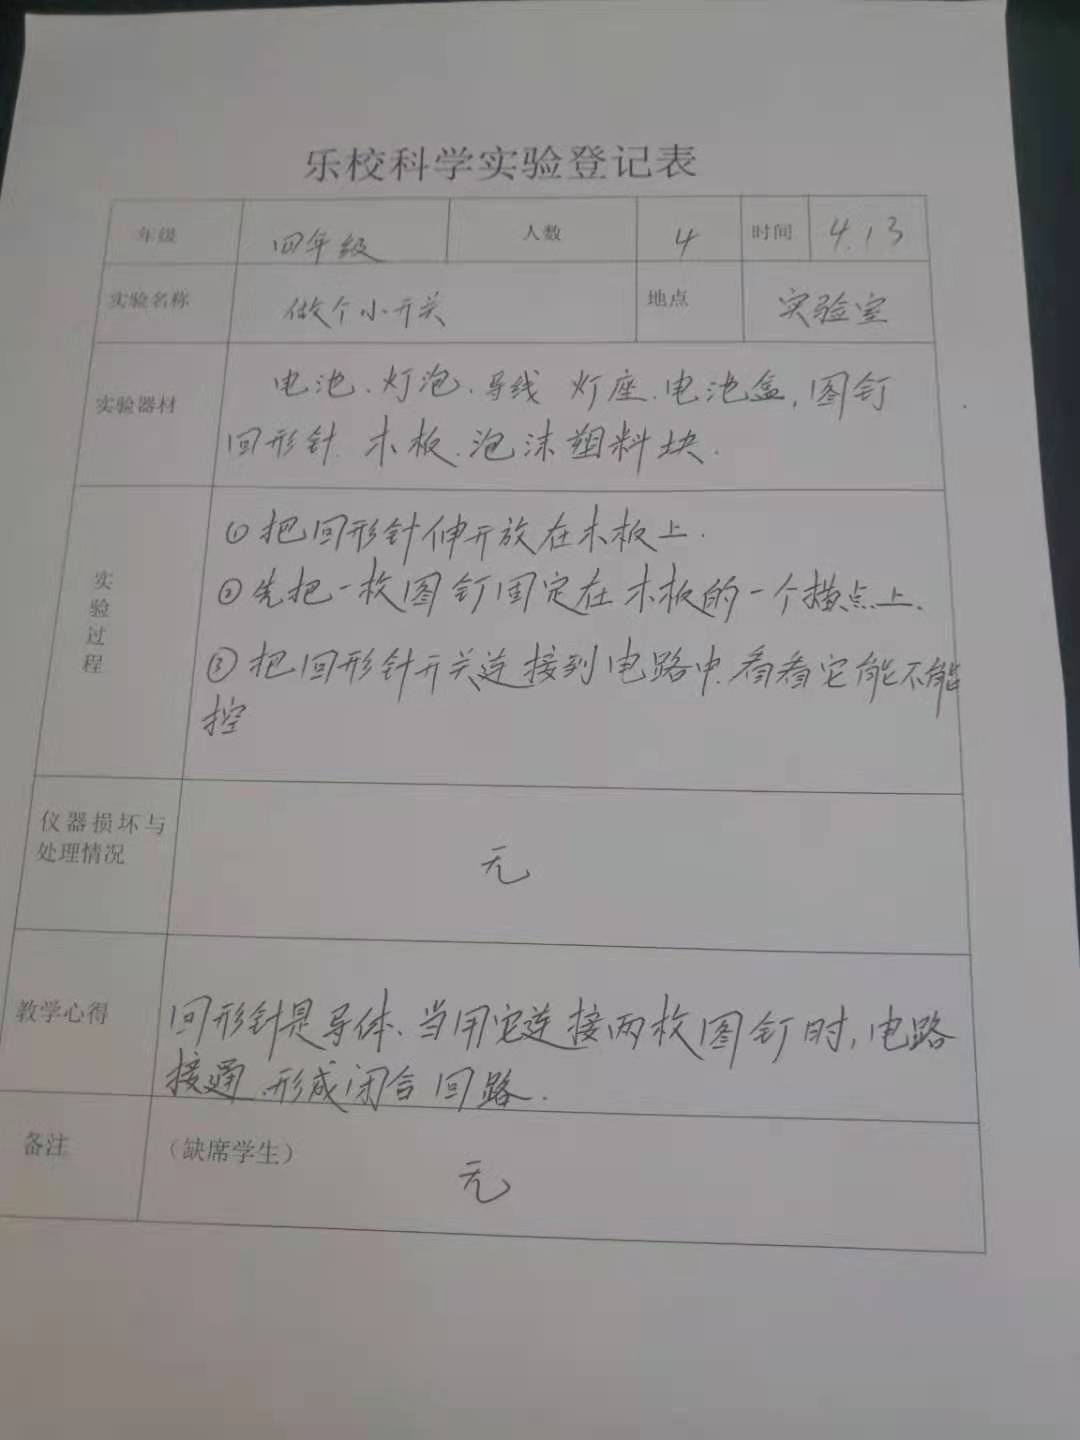 乐校科学实验登记表
年级 四年级 人数 4 时间 4.13
实验名称 做个小开关 地点 实验室
实验器材 电池、灯泡、导线 灯座、电池盒，图钉
回形针 木板、泡沫塑料块.
实验过程
①把回形针伸开放在木板上.
②先把一枚图钉固定在木板的一个描点上.
③把回形针开关连接到电路中.看看它能不能
控
仪器损坏与
处理情况
无
教学心得
回形针是导体、当用它连接两枚图钉时，电路
接通、形成闭合回路.
备注 （缺席学生）
无